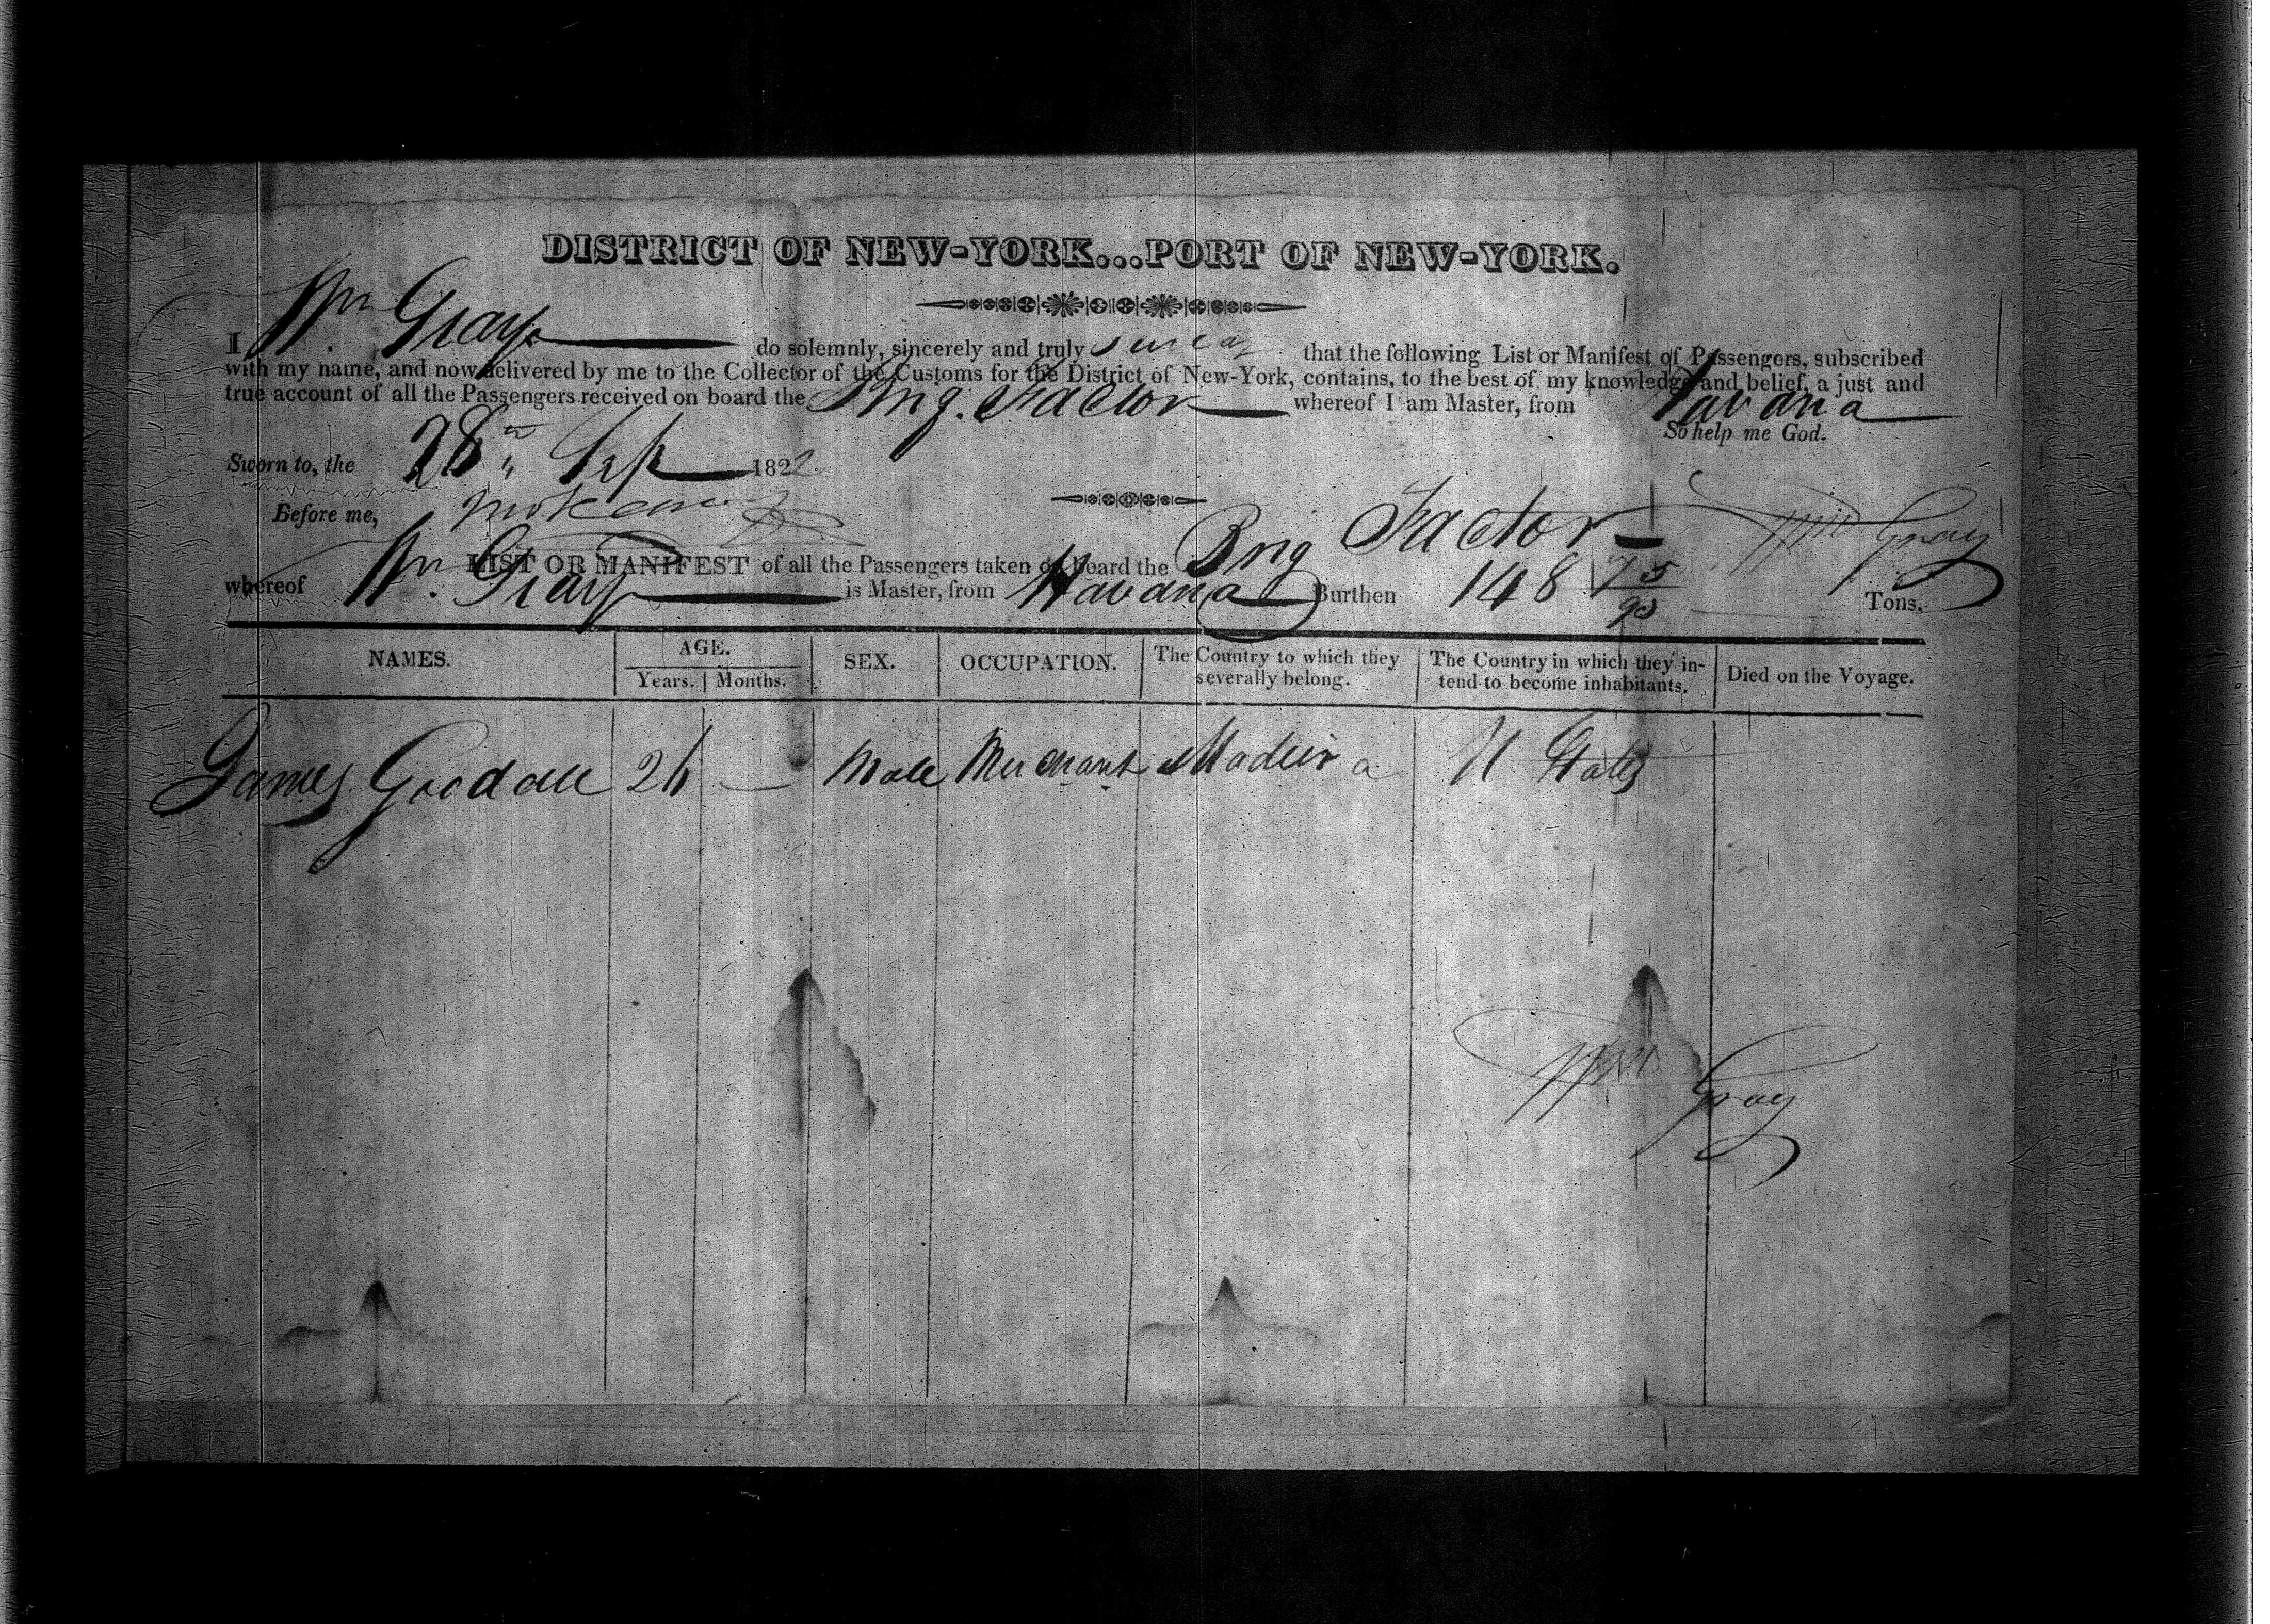 DISTRICT OF NEW-YORK...PORT OF NEW-YORK.
I Wm Gray do solemnly, sincerely and truly swear that the following List or Manifest of Passengers, subscribed
with my name, and now delivered by me to the Collector of the Customs for the District of New-York, contains, to the best of my knowledge and belief, a just and
true account of all the Passengers received on board the Brig. Factor whereof I am Master, from Havana
So help me God.
Sworn to, the 28th Sep 1822
Before me,
Wm Gray
LIST OR MANIFEST of all the Passengers taken on board the Brig Factor
whereof Wm. Gray is Master, from Havana Burthen 148 75/95 Tons.
NAMES. AGE. SEX. OCCUPATION. The Country to which they severally belong. The Country in which they intend to become inhabitants. Died on the Voyage.
Years. Months.
James Goodall 26 — Male Merchant Madeira U States
Wm Gray